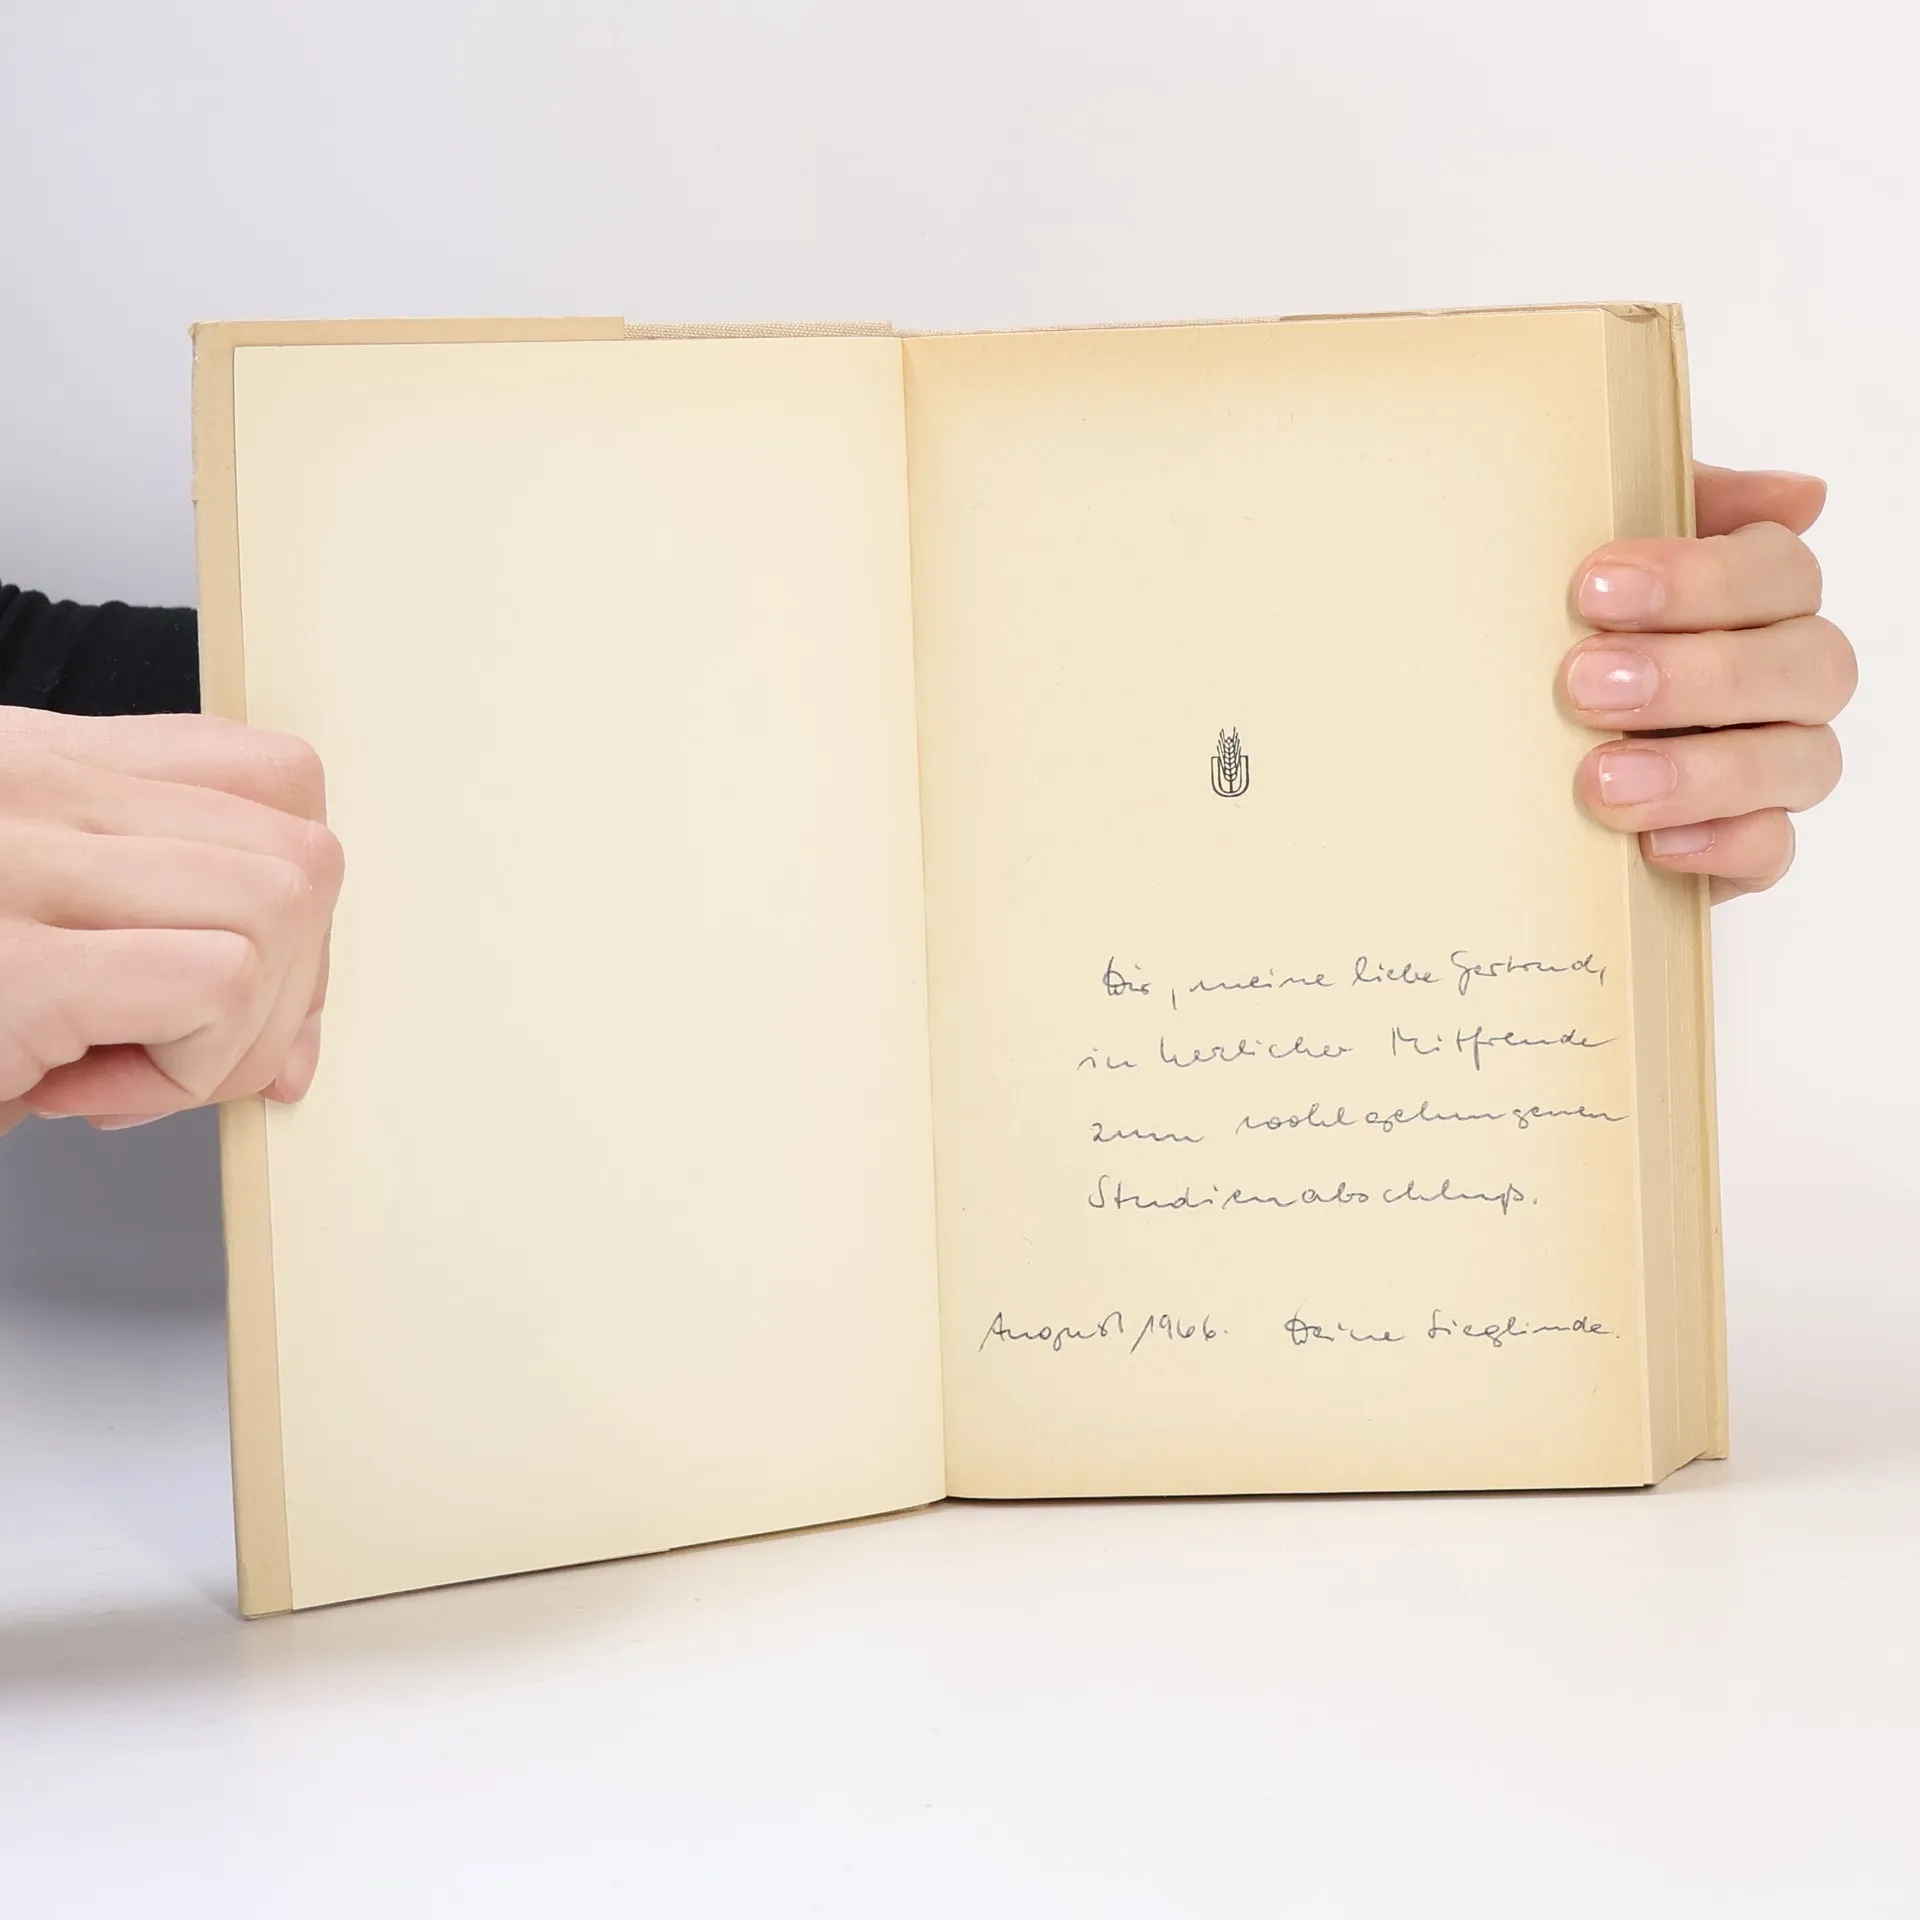 Dir, meine liebe Gertrud,
in herzlicher Mitfreude
zum wohlgelungenen
Studienabschluß.
August 1966. Deine Sieglinde.